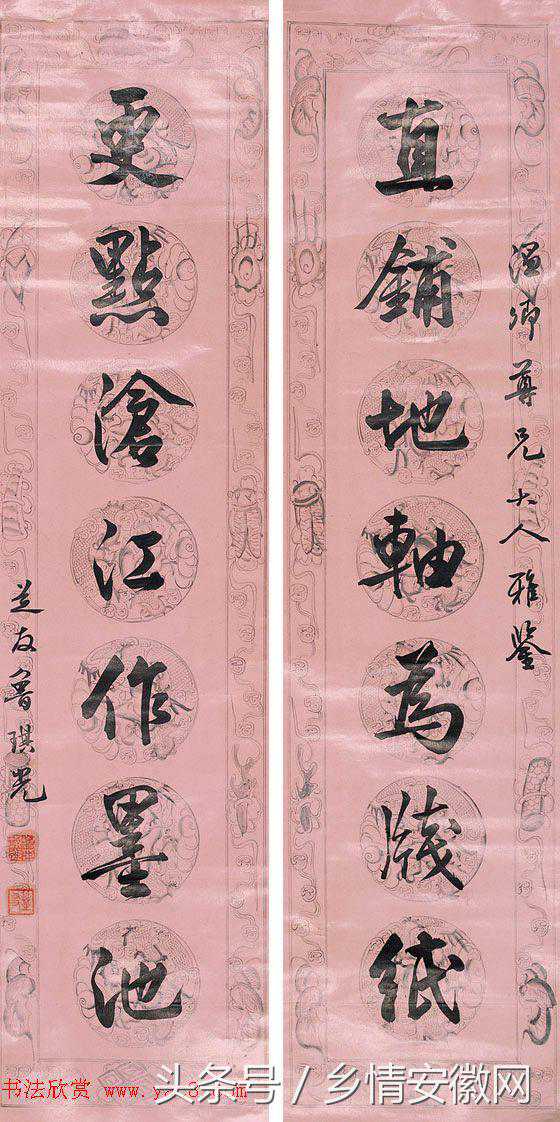 溫卿尊兄大人雅鑒
直鋪地軸為牋紙
更點滄江作墨池
芝友魯琪光
书法欣赏
头条号 / 乡情安徽网